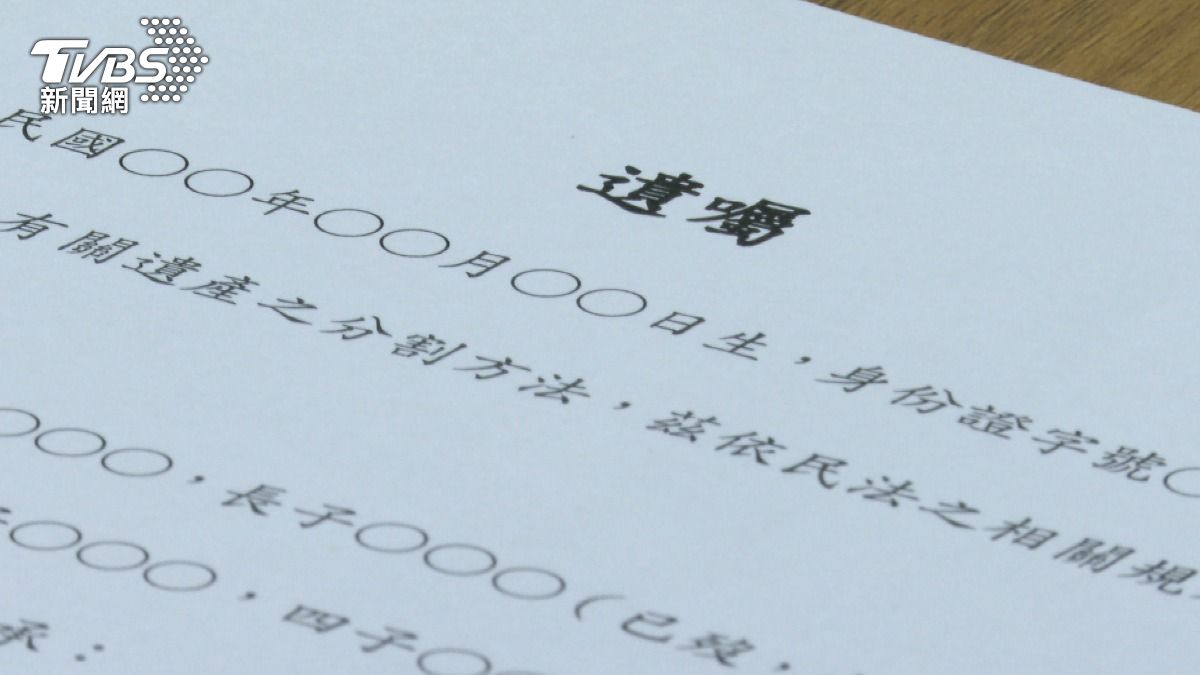 TVBS
新聞網
遺囑
民國○○年○○月○○日生，身份證字號○
有關遺產之分割方法，茲依民法之相關規
○○○，長子○○○（已歿，
○○○，四子○○
承：